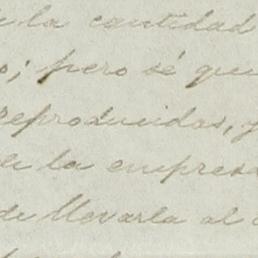 la cantidad
o; pero sé que
reproducidas, y
de la empresa
de llevarla al